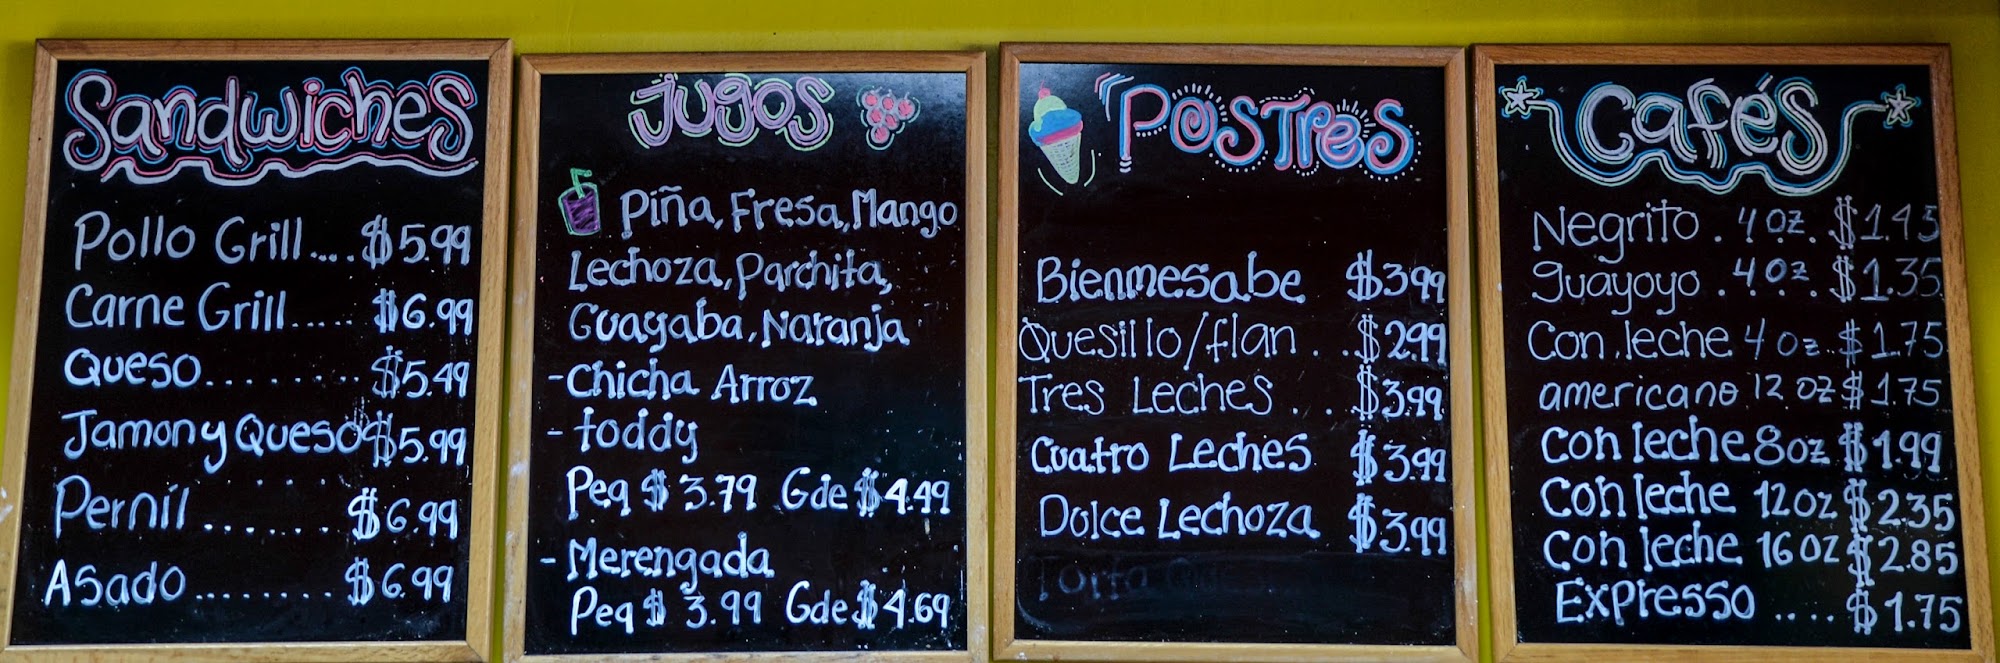 Sandwiches
Pollo Grill.... $5.99
Carne Grill..... $6.99
Queso........ $5.49
Jamon y Queso $5.99
Pernil ....... $6.99
Asado ........ $6.99
Jugos
Piña, Fresa, Mango
Lechoza, Parchita,
Guayaba, Naranja
-Chicha Arroz
- toddy
Peq $ 3.79 Gde $4.49
- Merengada
Peq $ 3.99 Gde $4.69
Postres
Bienmesabe $3.99
Quesillo/flan . . $2.99
Tres Leches . . . $3.99
Cuatro Leches $3.99
Dulce Lechoza $3.99
Torta
Cafés
Negrito . 4 oz . $1.45
guayoyo . 4 oz . $1.35
Con leche 4 oz .. $1.75
americano 12 oz $1.75
con leche 8oz $1.99
con leche 12oz $2.35
con leche 16 oz $2.85
Expresso .... $1.75